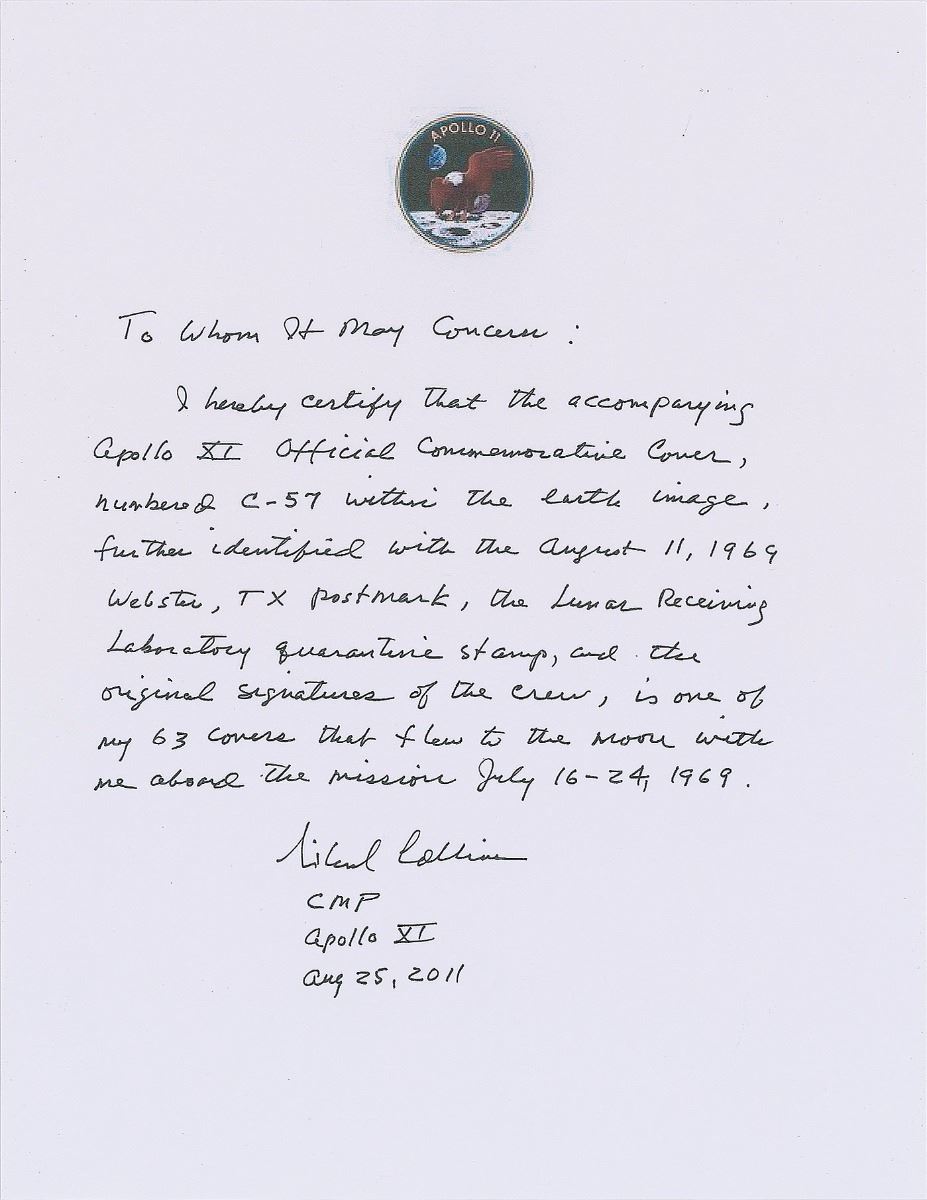 APOLLO 11
To Whom It May Concern :
I hereby certify that the accompanying
Apollo XI Official Commemorative Cover,
numbered C-57 within the earth image,
further identified with the August 11, 1969
Webster, TX postmark, the Lunar Receiving
Laboratory quarantine stamp, and the
original signatures of the crew, is one of
my 63 covers that flew to the moon with
me aboard the mission July 16-24, 1969.
Michael Collins
CMP
Apollo XI
Aug 25, 2011